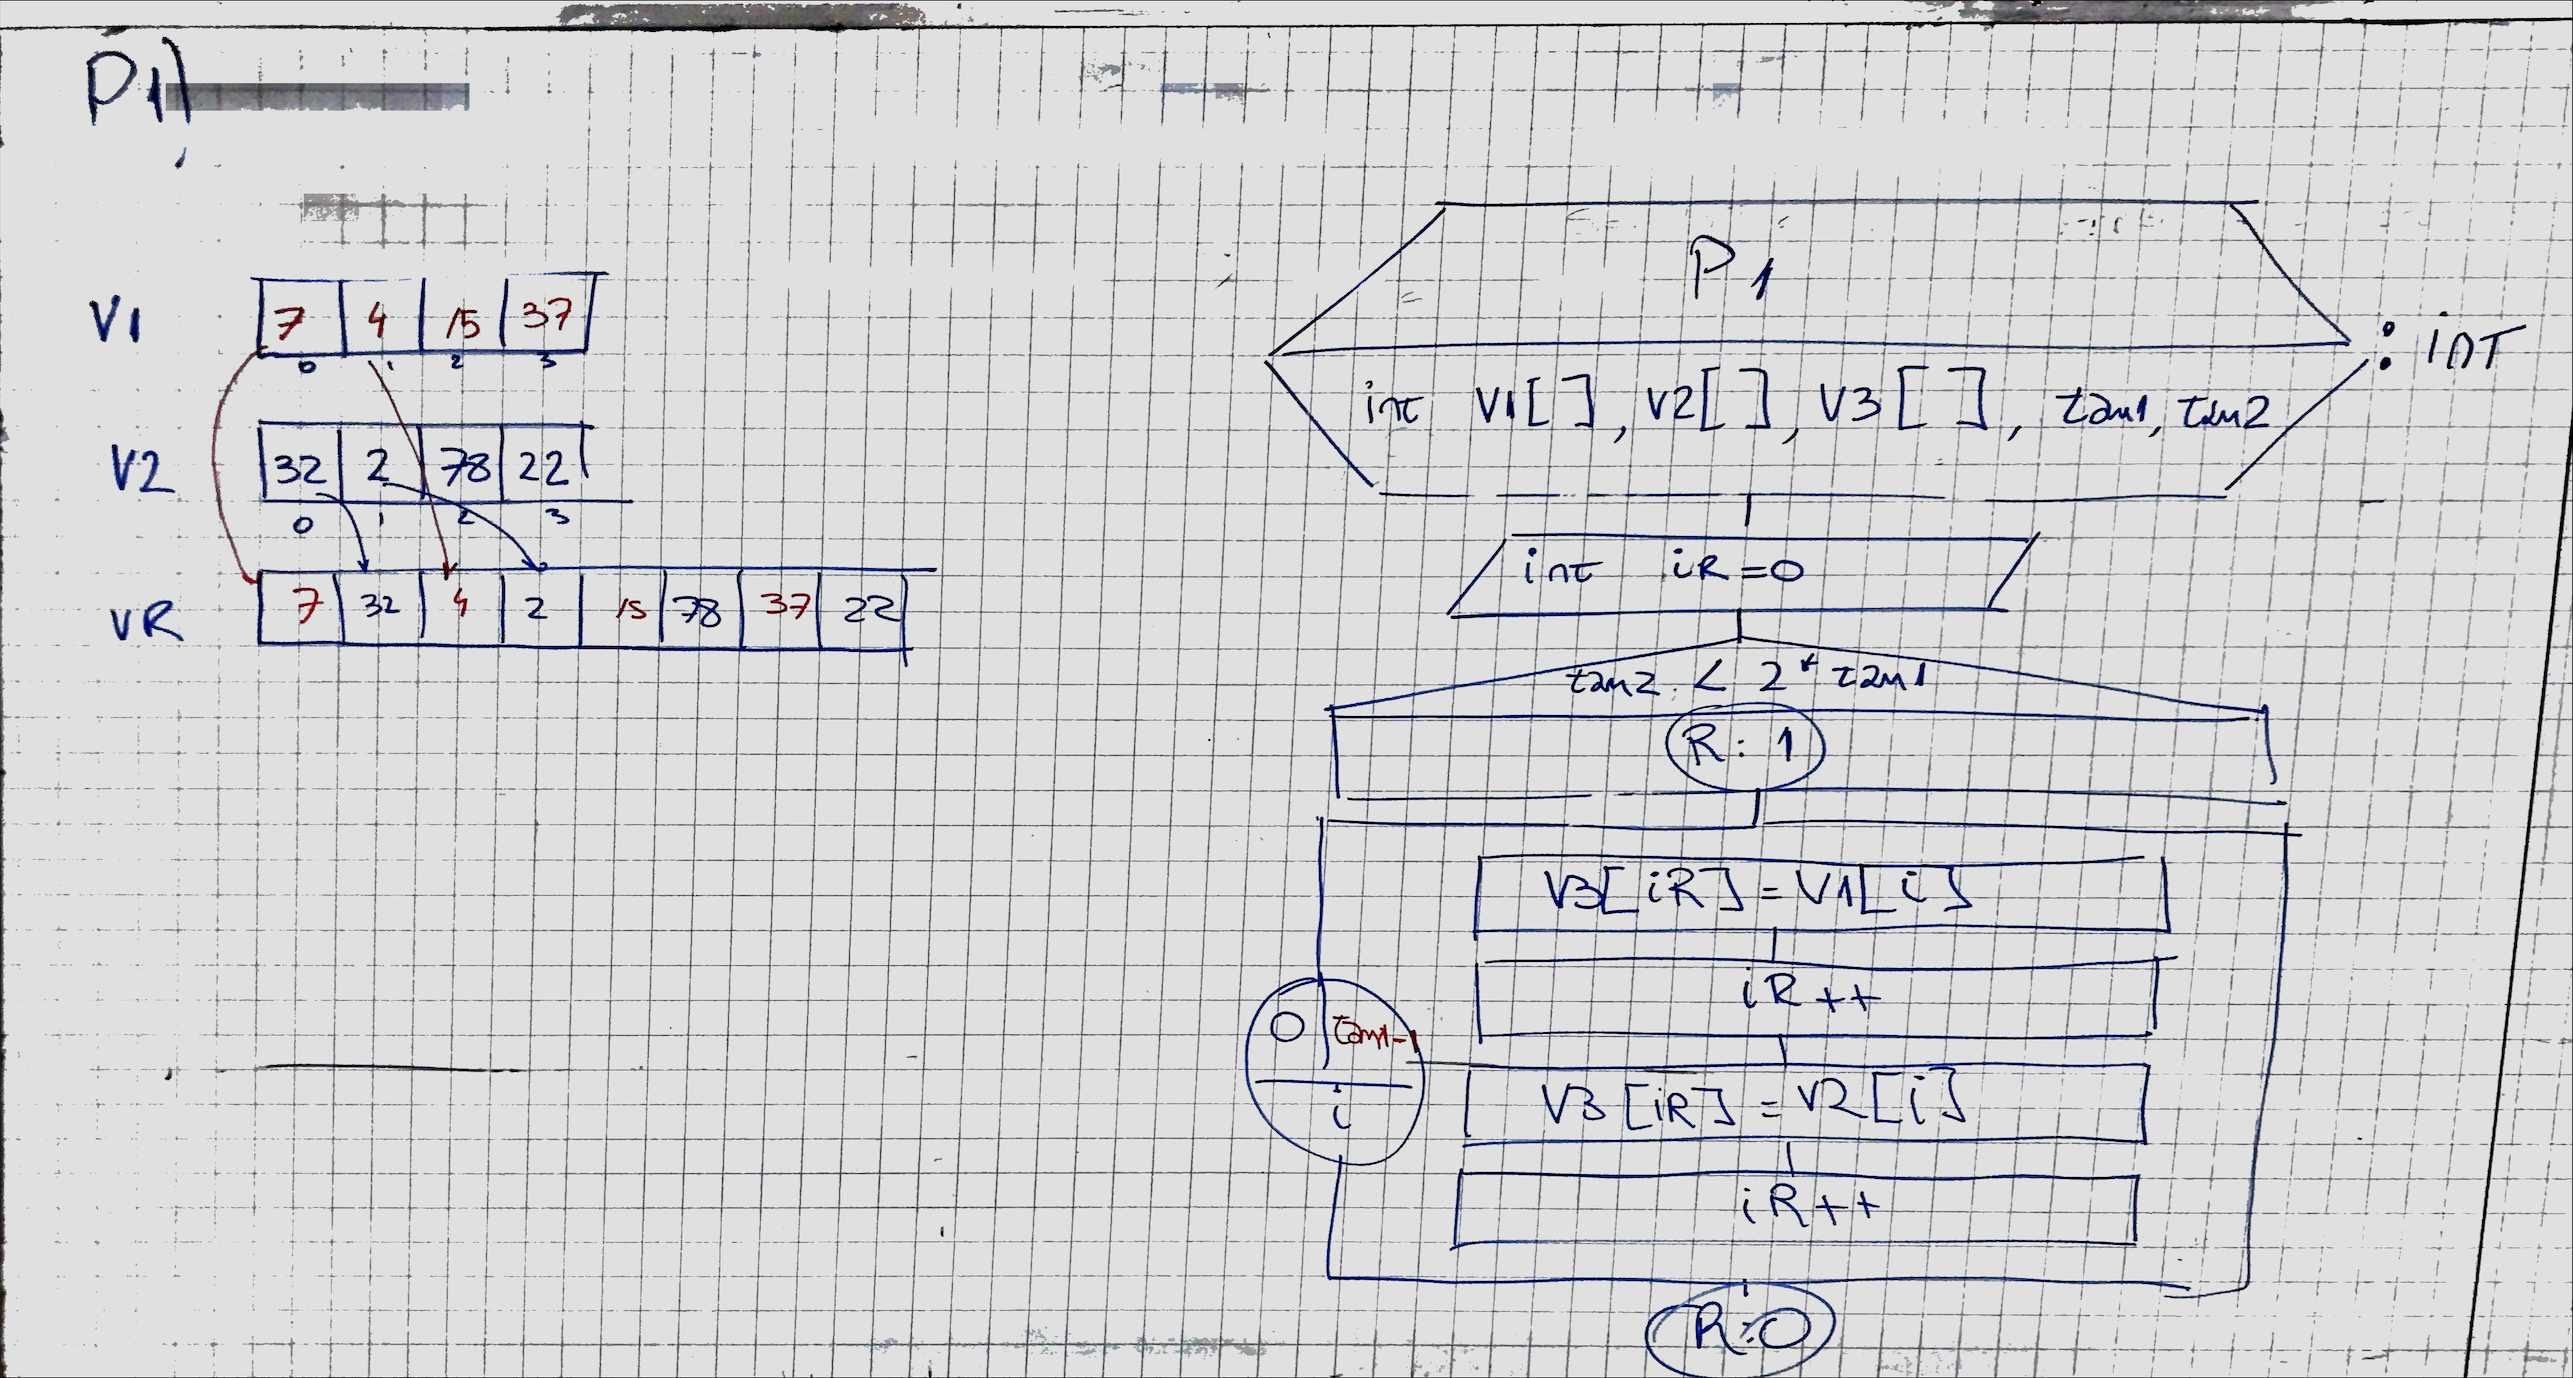 P1)
V1 7 4 15 37
0 1 2 3
V2 32 2 78 22
0 1 2 3
VR 7 32 4 2 15 78 37 22
P1
: int
int V1[], V2[], V3[], tam1, tam2
int iR=0
tam2 < 2*tam1
R: 1
V3[iR] = V1[i]
iR++
0 tam1-1
i
V3[iR] = V2[i]
iR++
R:0